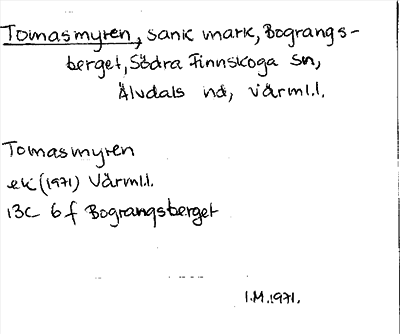 Tomasmyren, sank mark, Bograngs-
berget, Södra Finnskoga sn,
Älvdals hd, Värml.l.
Tomasmyren
ek (1971) Värml.l.
13C 6f Bograngsberget
I.M. 1971.